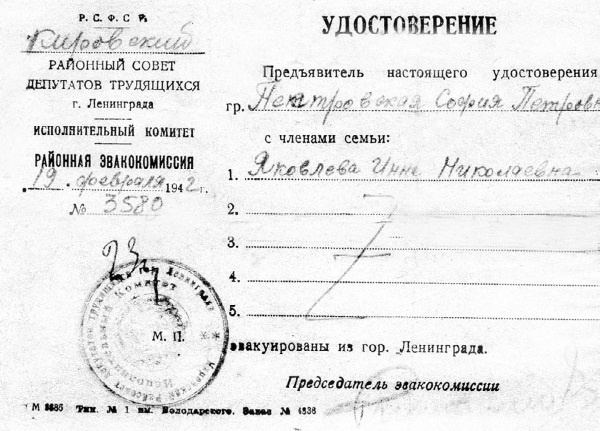 Р. С. Ф. С. Р.
Кировский
РАЙОННЫЙ СОВЕТ
ДЕПУТАТОВ ТРУДЯЩИХСЯ
г. Ленинграда
ИСПОЛНИТЕЛЬНЫЙ КОМИТЕТ
РАЙОННАЯ ЭВАКОКОМИССИЯ
19 февраля 1942 г.
№ 3580
23/
М. П.
Исполнительный Комитет
УДОСТОВЕРЕНИЕ
Предъявитель настоящего удостоверения
гр. Петровская София Петровн
с членами семьи:
1. Яковлева Инна Николаевна
2.
3.
4.
5.
эвакуированы из гор. Ленинграда.
Председатель эвакокомиссии
Тип. № 1 им. Володарского. Заказ № 4338